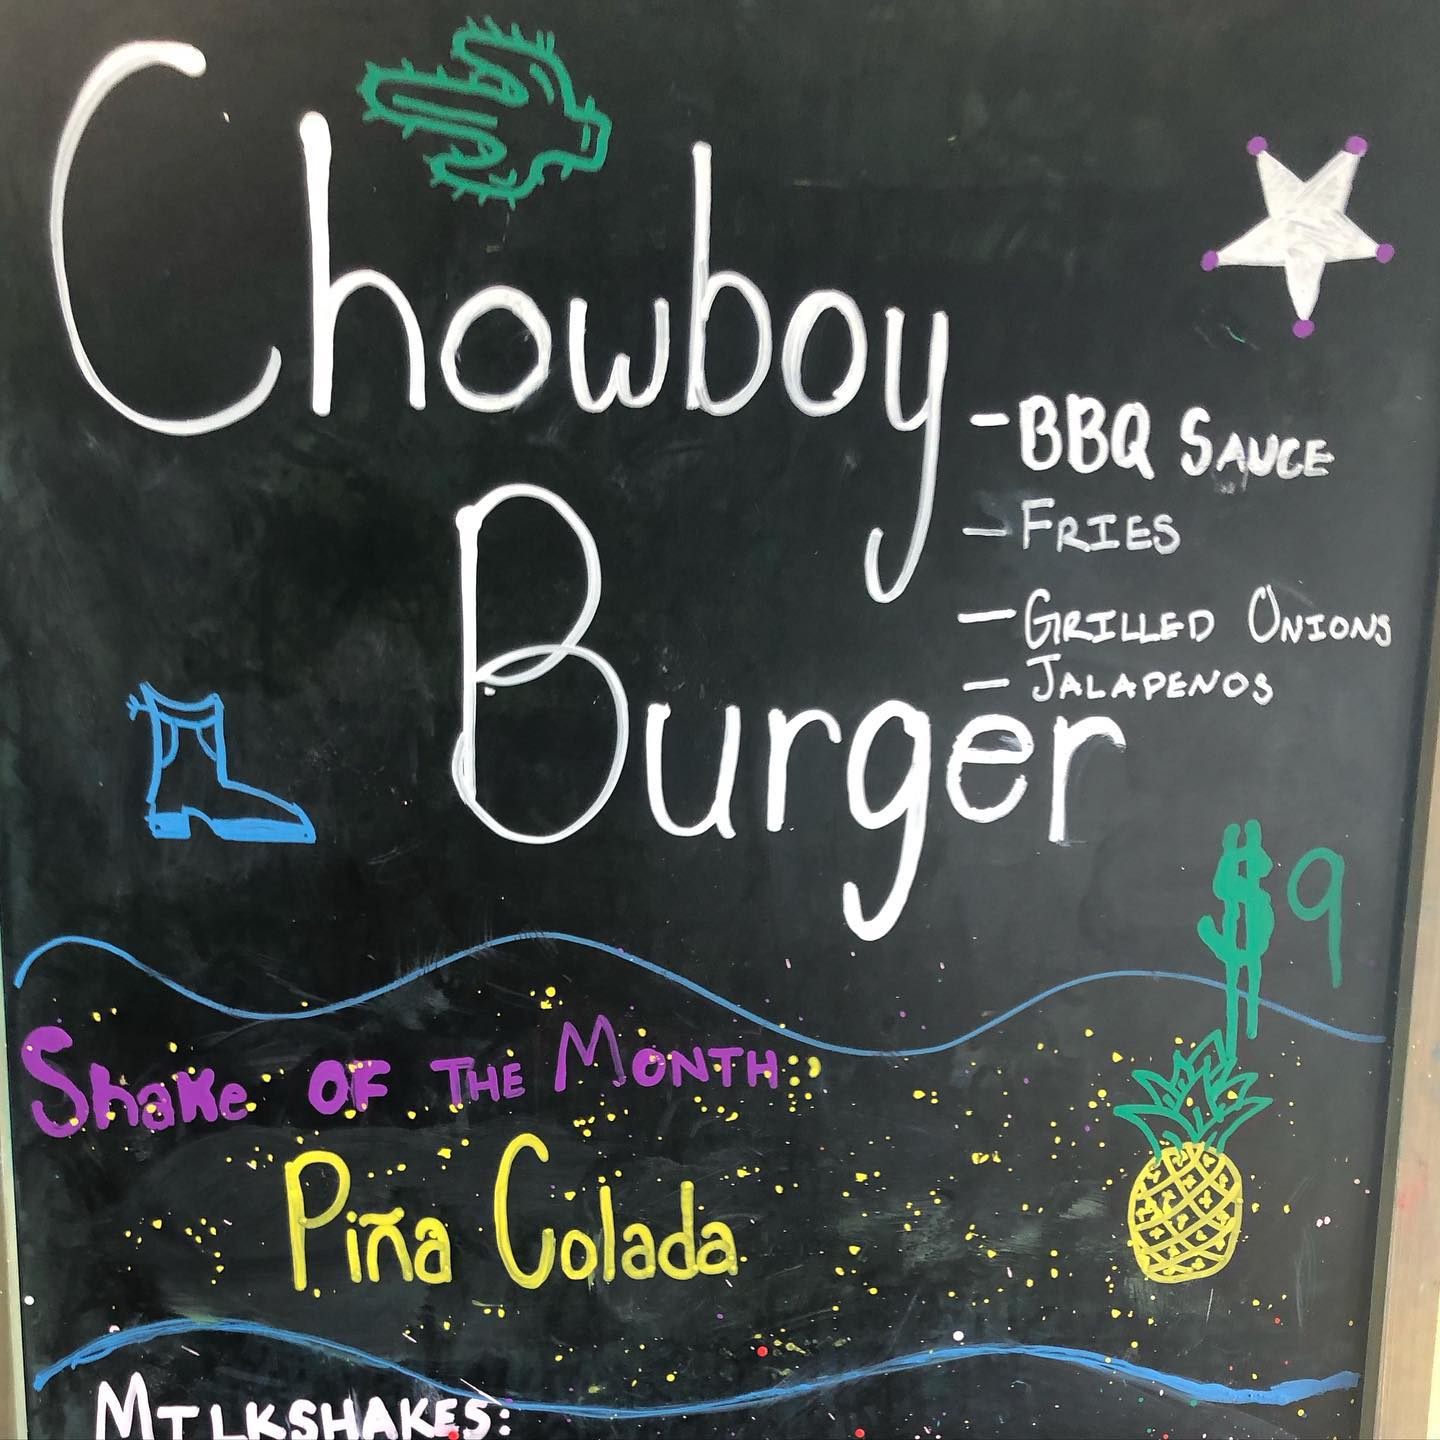 Chowboy
- BBQ SAUCE
- FRIES
- GRILLED ONIONS
- JALAPENOS
Burger
$9
Shake OF THE MONTH:
Piña Colada
MILKSHAKES: